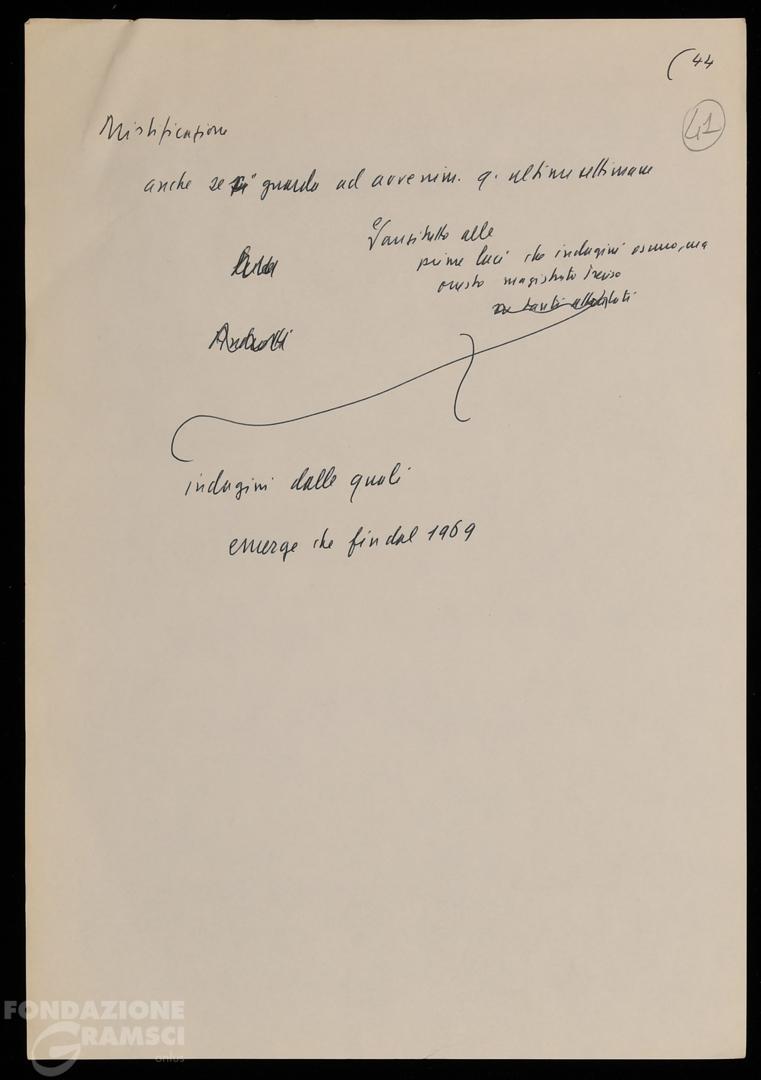 (44
41
Mistificazione
anche se si guarda ad avvenim. q. ultime settimane
alle
prime luci che indagini
onesto magistrato Treviso
Andreotti
indagini dalle quali
emerge che fin dal 1969
FONDAZIONE
GRAMSCI
onlus